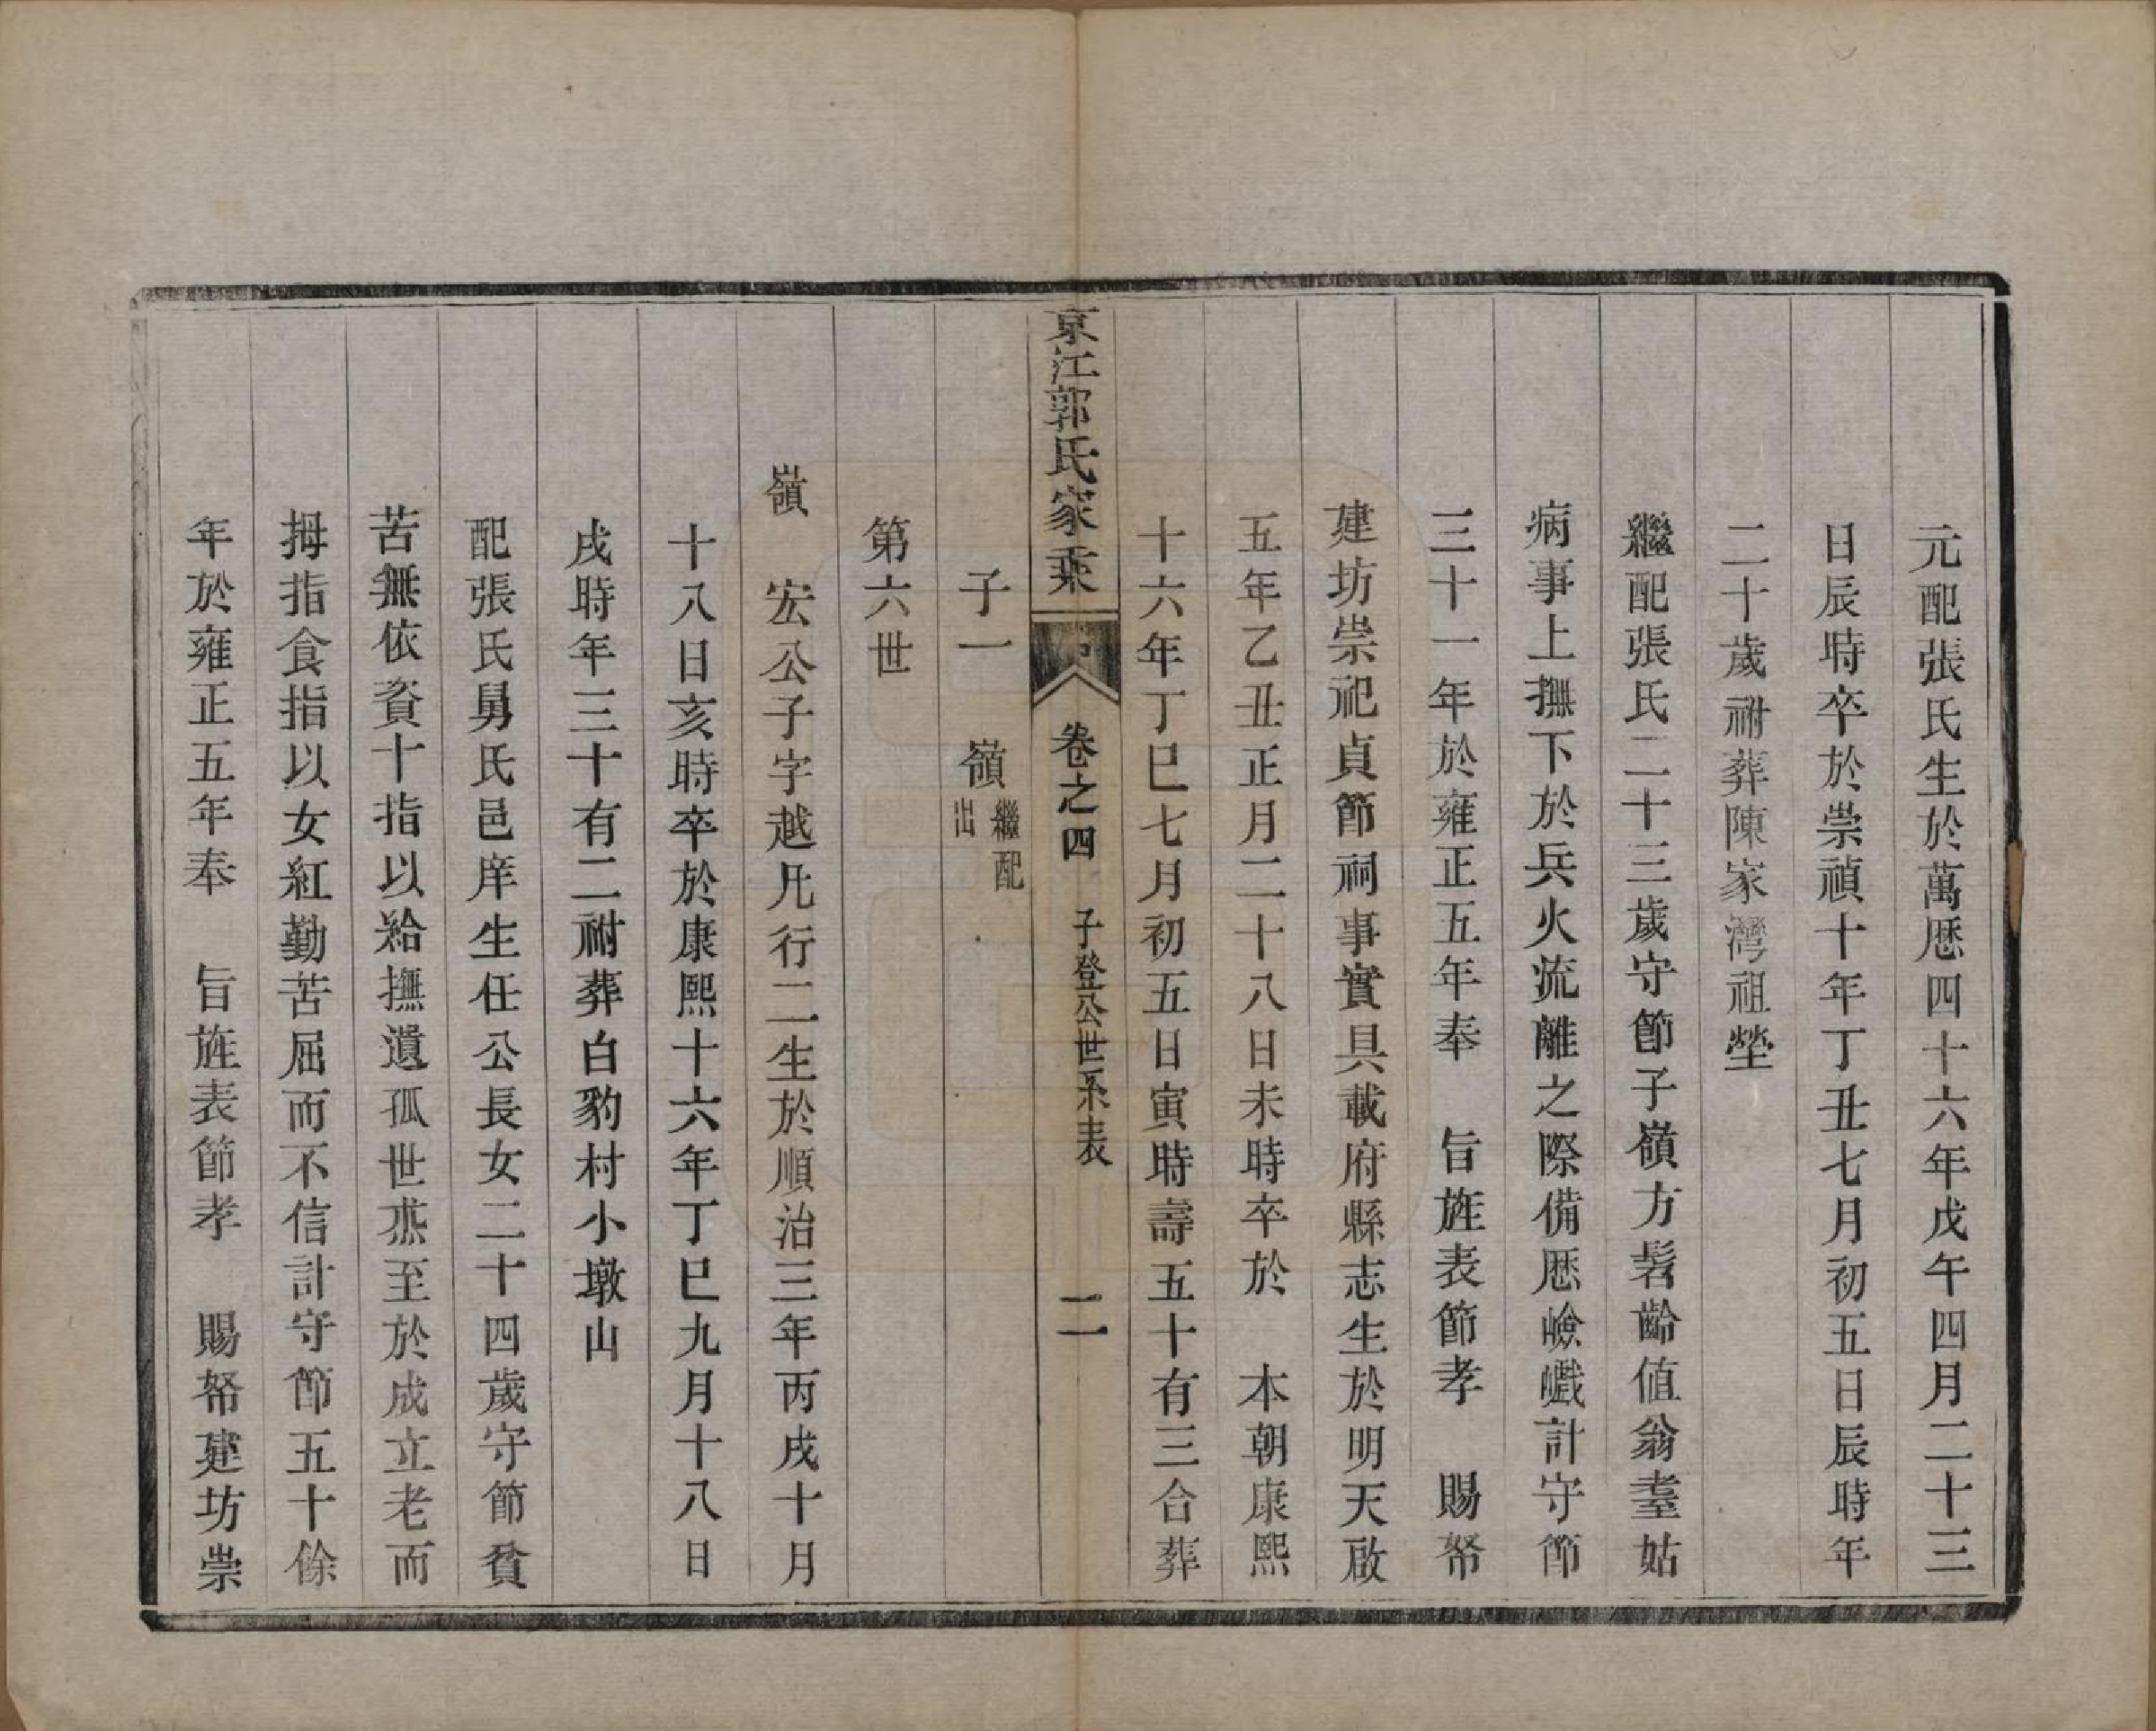 元配張氏生於萬厯四十六年戊午四月二十三
日辰時卒於崇禎十年丁丑七月初五日辰時年
二十歲祔葬陳家灣祖塋
繼配張氏二十三歲守節子嶺方髫齡值翁耄姑
病事上撫下於兵火流離之際備厯嶮巇計守節
三十一年於雍正五年奉　旨旌表節孝　賜帑
建坊崇祀貞節祠事實具載府縣志生於明天啟
五年乙丑正月二十八日未時卒於　本朝康熙
十六年丁巳七月初五日寅時壽五十有三合葬
京江郭氏家乘　卷之四　子登公世系表　二
子一　嶺繼配出
第六世
嶺　宏公子字越凡行二生於順治三年丙戌十月
十八日亥時卒於康熙十六年丁巳九月十八日
戌時年三十有二祔葬白豹村小墩山
配張氏舅氏邑庠生任公長女二十四歲守節貧
苦無依資十指以給撫遺孤世燕至於成立老而
拇指食指以女紅勤苦屈而不信計守節五十餘
年於雍正五年奉　旨旌表節孝　賜帑建坊崇